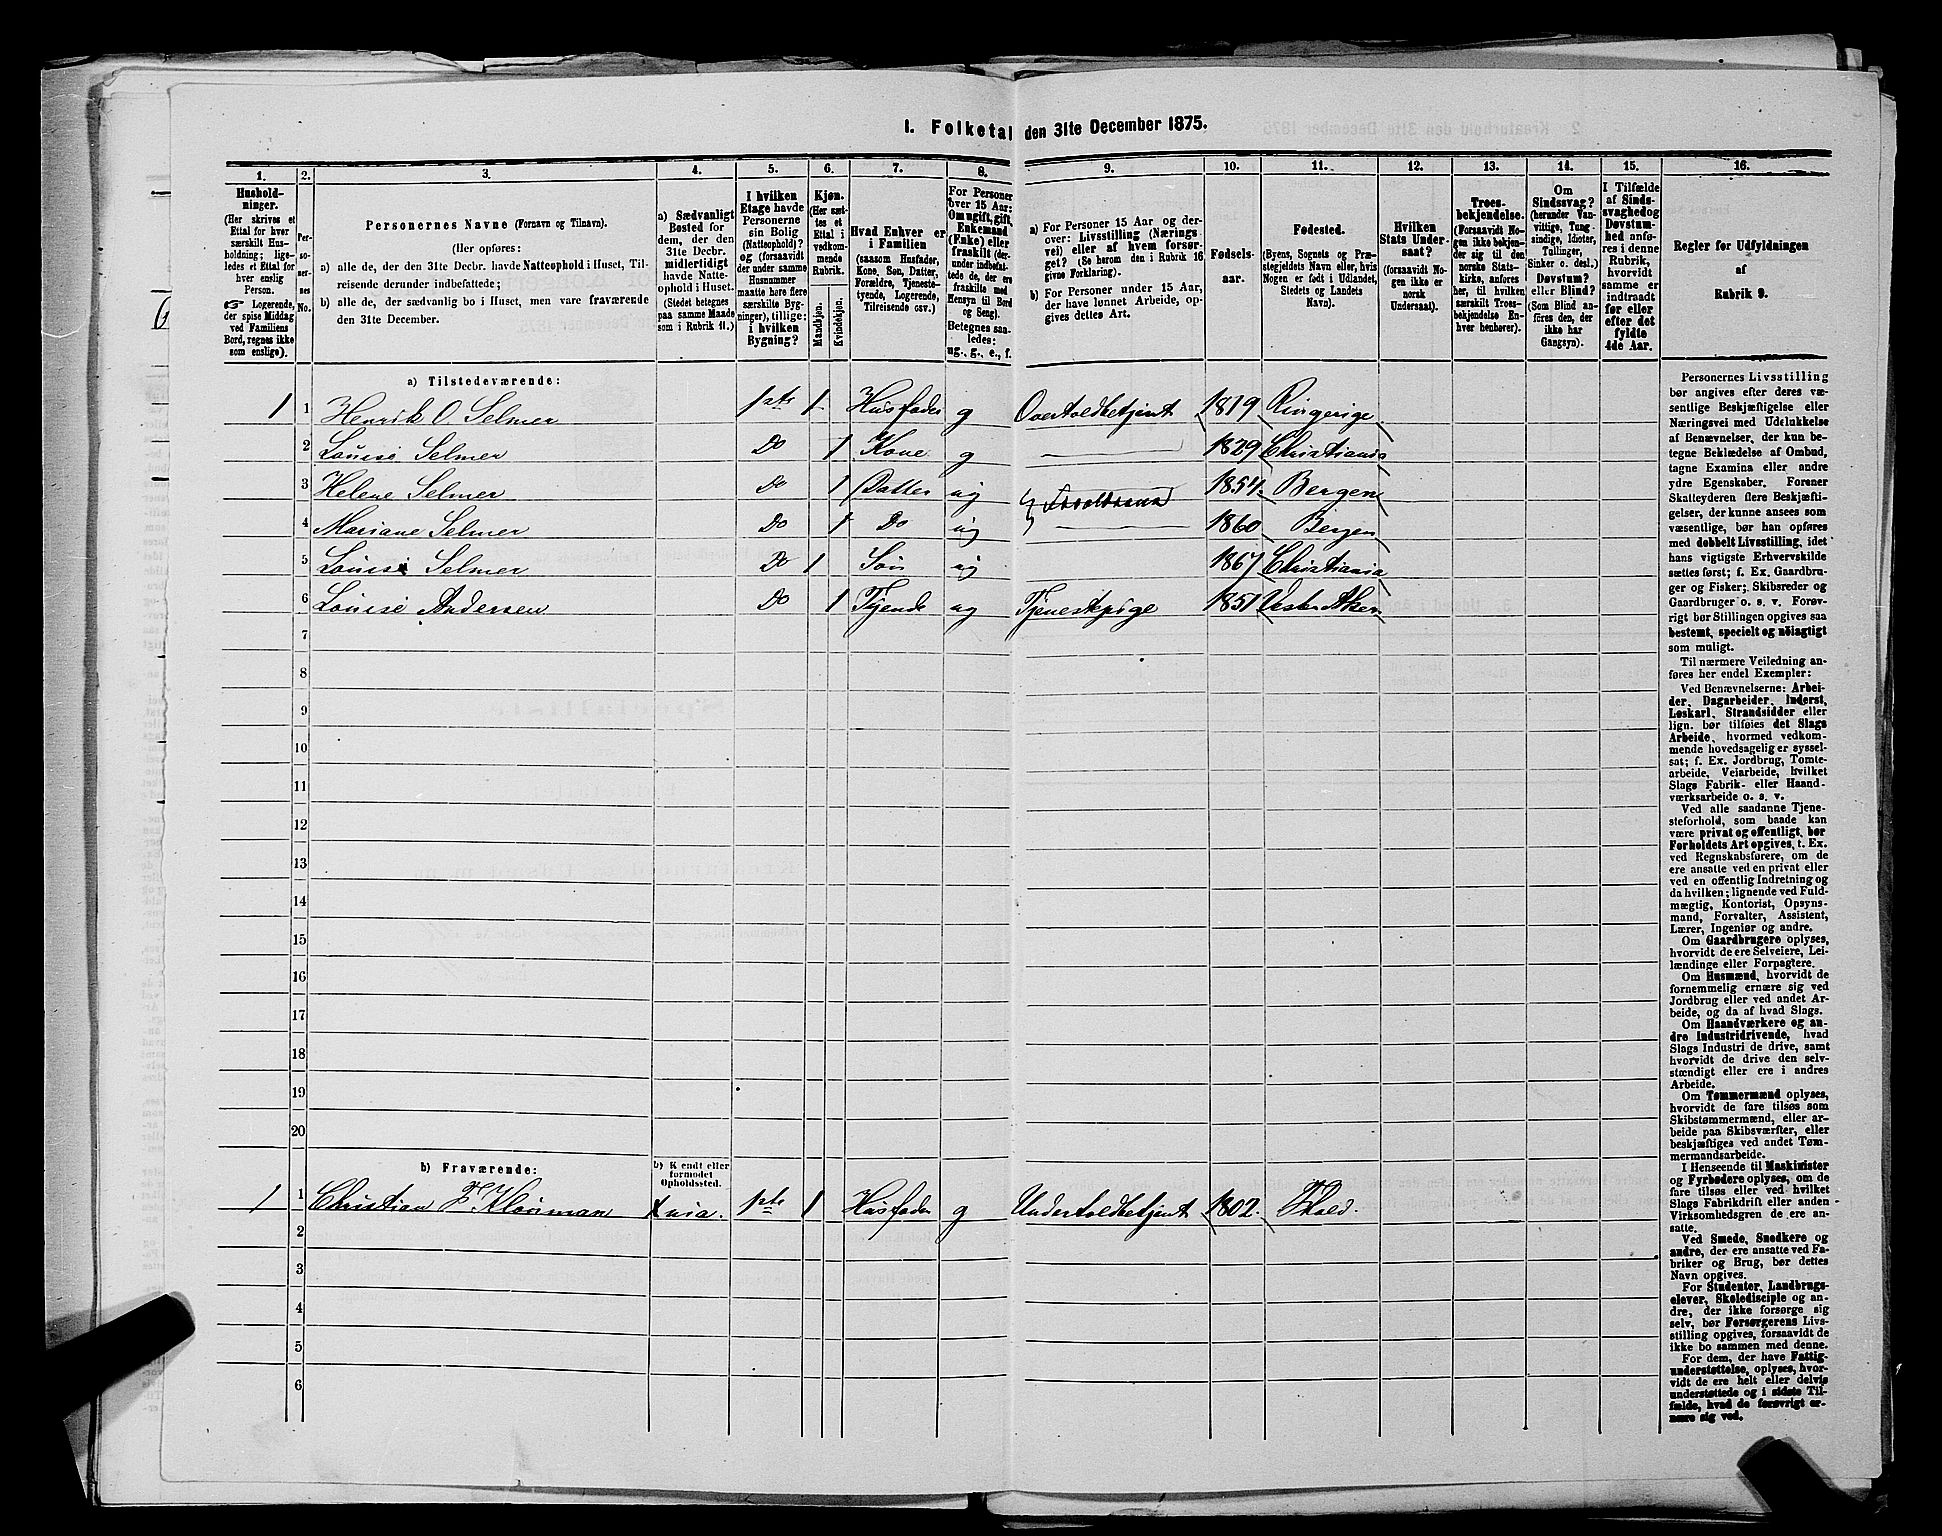 1. Folketal den 31te December 1875.
1. 2. 3. 4. 5. 6. 7. 8. 9. 10. 11. 12. 13. 14. 15. 16.
Hushold-
ninger.
(Her skrives et
Ettal for hver
særskilt Hus-
holdning; lige-
ledes et Ettal for
hver enslig
Person.
☞ Logerende,
der spise Middag
ved Familiens
Bord, regnes ikke
som enslige).
Per-
so-
ner-
nes
No.
Personernes Navne (Fornavn og Tilnavn).
(Her opføres:
a) alle de, der den 31te Decbr. havde Natteophold i Huset, Til-
reisende derunder indbefattede;
b) alle de, der sædvanlig bo i Huset, men vare fraværende
den 31te December.
a) Sædvanligt
Bosted for
dem, der den
31te Decbr.
midlertidigt
havde Natte-
ophold i Huset.
(Stedet betegnes
paa samme Maade
som i Rubrik 11.)
I hvilken
Etage havde
Personerne
sin Bolig
(Natteophold)?
og (forsaavidt
der under samme
Husnummer
maatte høre flere
særskilte Byg-
ninger), tillige:
i hvilken
Bygning?
Kjøn.
(Her sæt-
tes et
Ettal i
vedkom-
mende
Rubrik.
Mandkjøn.
Kvindekjøn.
Hvad Enhver er
i Familien
(saasom Husfader,
Kone, Søn, Datter,
Forældre, Tjeneste-
tyende, Logerende,
Tilreisende osv.)
For Personer
over 15 Aar:
Om ugift, gift,
Enkemand
(Enke) eller
fraskilt (der-
under indbefat-
tede de, der ere
fraskilte med
Hensyn til Bord
og Seng).
Betegnes saa-
ledes:
ug., g., e., f.
a) For Personer 15 Aar og der-
over: Livsstilling (Nærings-
vei) eller af hvem forsør-
get? (Se herom den i Rubrik 16
givne Forklaring).
b) For Personer under 15 Aar,
der have lønnet Arbeide, op-
gives dettes Art.
Fødsels-
aar.
Fødested.
(Byens, Sognets og Præ-
stegjeldets Navn eller, hvis
Nogen er født i Udlandet,
Stedets og Landets
Navn).
Hvilken
Stats Under-
saat?
(forsaavidt No-
gen ikke er
norsk
Undersaat).
Troes-
bekjendelse.
(Forsaavidt No-
gen ikke bekjen-
der sig til den
norske Stats-
kirke, anføres
her, til hvilken
særskilt Troes-
bekjendelse En-
hver henhører).
Om
Sindssvag?
(herunder Van-
vittige, Tung-
sindige, Idioter,
Tullinger,
Sinker o. desl.)
Døvstum?
eller Blind?
(Som Blind an-
føres den, der
ikke har
Gangsyn).
I Tilfælde
af Sinds-
svaghed og
Døvstum-
hed anfø-
res i denne
Rubrik,
hvorvidt
samme er
indtraadt
før eller
efter det
fyldte
4de Aar.
Regler for Udfyldningen
af
Rubrik 9.
a) Tilstedeværende:
1 1 Henrik O. Selmer 1ste 1 Husfader g Overtoldbetjent 1819 Ringerige
2 Louise Selmer Do 1 Kone g 1829 Christiania
3 Helene Selmer Do 1 Datter ug 1854 Bergen
4 Mariane Selmer Do 1 Do ug 1860 Bergen
5 Louis Selmer Do 1 Søn ug 1867 Christiania
6 Louise Andersen Do 1 Tjende ug Tjenestepige 1851 Vester Aker
7
8
9
10
11
12
13
14
15
16
17
18
19
20
b) Fraværende:
b) Kjendt eller
formodet
Opholdssted.
1 1 Christian F Klouman 1ste 1 Husfader g Undertoldbetjent 1802
2
3
4
5
6
Personernes Livsstilling
bør angives efter deres væ-
sentlige Beskjæftigelse eller
Næringsvei med Udelukkelse
af Benævnelser, der kun be-
tegne Beklædelse af Ombud,
tagne Examina eller andre
ydre Egenskaber. Forener
Skatteyderen flere Beskjæfti-
gelser, der kunne ansees som
væsentlige, bør han opføres
med dobbelt Livsstilling, idet
hans vigtigste Erhvervskilde
sættes først; f. Ex. Gaardbru-
ger og Fisker; Skibsreder og
Gaardbruger o. s. v. Forøv-
rigt bør Stillingen opgives saa
bestemt, specielt og nøiagtigt
som muligt.
Til nærmere Veiledning an-
føres her endel Exempler:
Ved Benævnelserne: Arbei-
der, Dagarbeider, Inderst,
Løskarl, Strandsidder eller
lign. bør tilføies det Slags
Arbeide, hvormed vedkom-
mende hovedsagelig er syssel-
sat; f. Ex. Jordbrug, Tomte-
arbeide, Veiarbeide, hvilket
Slags Fabrik- eller Haand-
værksarbeide o. s. v.
Ved alle saadanne Tjene-
steforhold, som baade kan
være privat og offentligt, bør
Forholdets Art opgives, t. Ex.
ved Regnskabsførere, om de
ere ansatte ved en privat eller
ved en offentlig Indretning og
da hvilken; lignende ved Fuld-
mægtig, Kontorist, Opsyns-
mand, Forvalter, Assistent,
Lærer, Ingeniør og andre.
Om Gaardbrugere oplyses,
hvorvidt de ere Selveiere, Lei-
lændinge eller Forpagtere.
Om Husmænd, hvorvidt de
fornemmelig ernære sig ved
Jordbrug eller ved andet Ar-
beide, og da af hvad Slags.
Om Haandværkere og an-
dre Industridrivende, hvad
Slags Industri de drive, samt
hvorvidt de drive den selv-
stændigt eller ere i andres
Arbeide.
Om Tømmermænd oplyses,
hvorvidt de fare tilsøs som
Skibstømmermænd, eller ar-
beide paa Skibsværfter, eller
beskjæftiges ved andet Tøm-
mermandsarbeide.
I Henseende til Maskinister
og Fyrbødere oplyses, om de
fare tilsøs eller ved hvilket
Slags Fabrikdrift eller anden
Virksomhedsgren de ere an-
satte.
Ved Smede, Snedkere og
andre, der ere ansatte ved Fa-
briker og Brug, bør dettes
Navn opgives.
For Studenter, Landbrugs-
elever, Skoledisciple og an-
dre, der ikke forsørge sig
selv, bør Forsørgerens Livs-
stilling opgives, forsaavidt de
ikke bo sammen med denne.
For dem, der have Fattig-
understøttelse, oplyses, hvor-
vidt de ere helt eller delvis
understøttede og i sidste Til-
fælde, hvad de forøvrigt er-
nære sig ved.